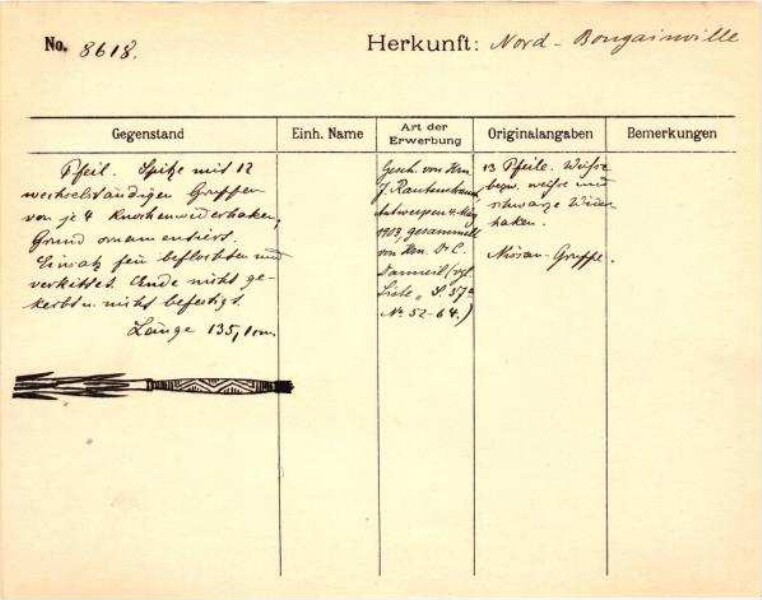 No. 8618.
Herkunft: Nord-Bougainville
Gegenstand
Einh. Name
Art der Erwerbung
Originalangaben
Bemerkungen
Pfeil. Spitze mit 12
wechselständigen Gruppen
von je 4 Knochenwiderhaken,
Grund ornamentiert.
Einsatz fein beflochten und
verkittet. Ende nicht ge-
kerbt u. nicht befestigt.
Länge 135,1 cm.
Gesch. von Hrn.
J. Rautenstrauch,
Antwerpen 4. März
1903, gesammelt
von Hrn. Dr C.
(vgl.
Liste S. 57a
No 52-64.)
13 Pfeile. Weihse
bezw. weihse und
schwarze Wider
haken.
Gruppe.